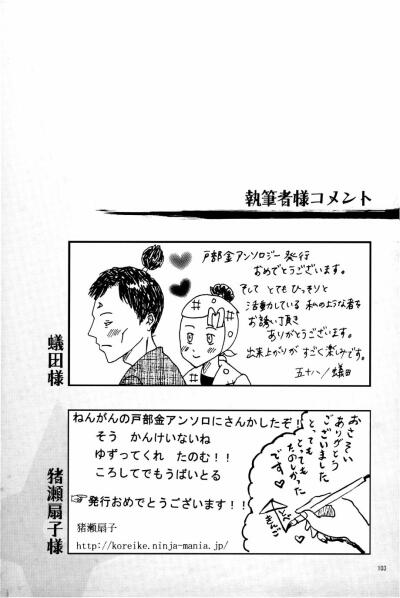 執筆者様コメント
戸部金アンソロジー発行
おめでとうございます。
そして とても ひっそりと
活動している 私のような者を
お誘い頂き
ありがとうございます。
出来上がりが すごく楽しみです。
五十八/蟻田
蟻田様
ねんがんの戸部金アンソロにさんかしたぞ!
そう かんけいないね
ゆずってくれ たのむ!!
ころしてでもうばいとる
☞発行おめでとうございます!!
猪瀬扇子
http://koreike.ninja-mania.jp/
おさそい
ありがとう
ございました
とっても
とっても
たのしかった
です♡
猪瀬扇子様
103